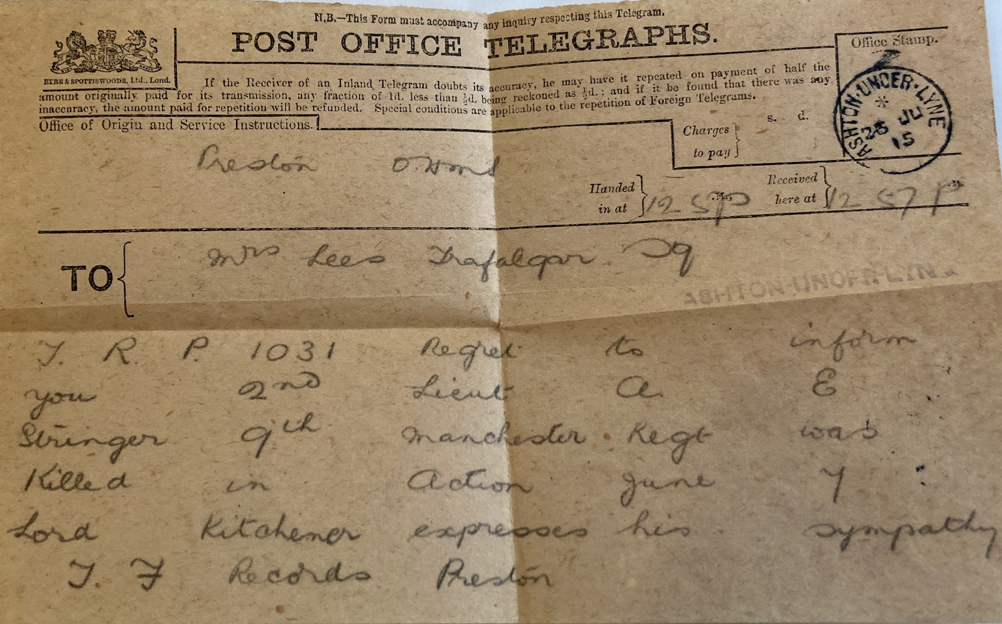 N.B.—This Form must accompany any inquiry respecting this Telegram.
POST OFFICE TELEGRAPHS.
EYRE & SPOTTISWOODE, Ltd., Lond.
If the Receiver of an Inland Telegram doubts its accuracy, he may have it repeated on payment of half the
amount originally paid for its transmission, any fraction of 1d. less than ½d. being reckoned as ½d.; and if it be found that there was any
inaccuracy, the amount paid for repetition will be refunded. Special conditions are applicable to the repetition of Foreign Telegrams.
Office Stamp.
ASHTON-UNDER-LYNE
15
Office of Origin and Service Instructions.
Charges to pay
s. d.
Preston O.H.M.S
Handed in at
Received here at
12 57 P
TO
Mrs Lees Trafalgar Sq
ASHTON-UNDER-LYNE
T. R. P. 1031 Regret to inform
you 2nd Lieut A. E
Stringer 9th Manchester Regt was
Killed in Action June 7
Lord Kitchener expresses his sympathy
T. F Records Preston